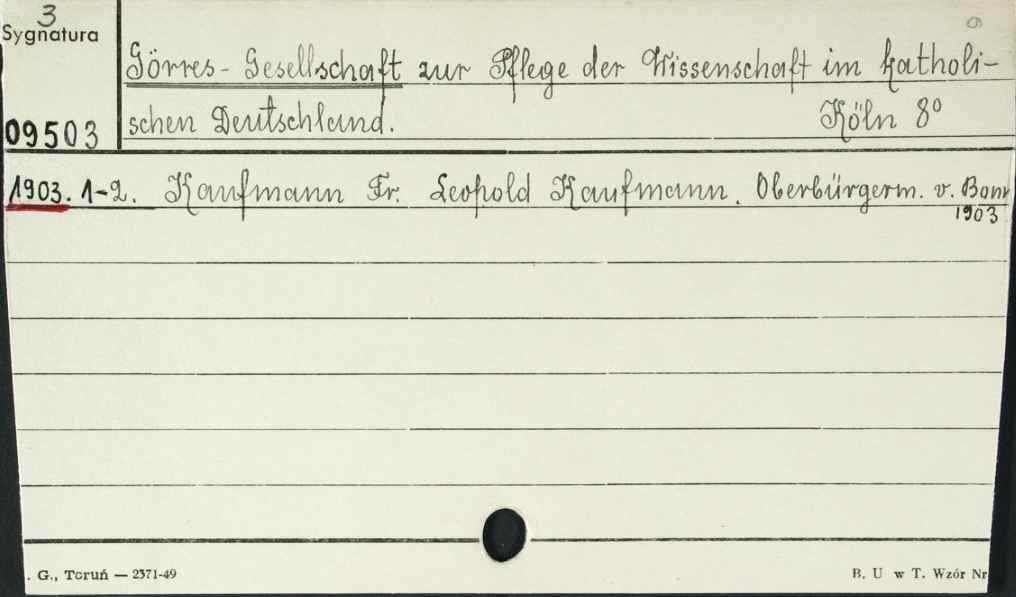 3
Sygnatura
Görres-Gesellschaft zur Pflege der Wissenschaft im katholi-
09503 schen Deutschland. Köln 8°
1903. 1-2. Kaufmann Fr. Leopold Kaufmann. Oberbürgerm. v. Bonn
1903
. G., Toruń — 2371-49 B. U w T. Wzór Nr